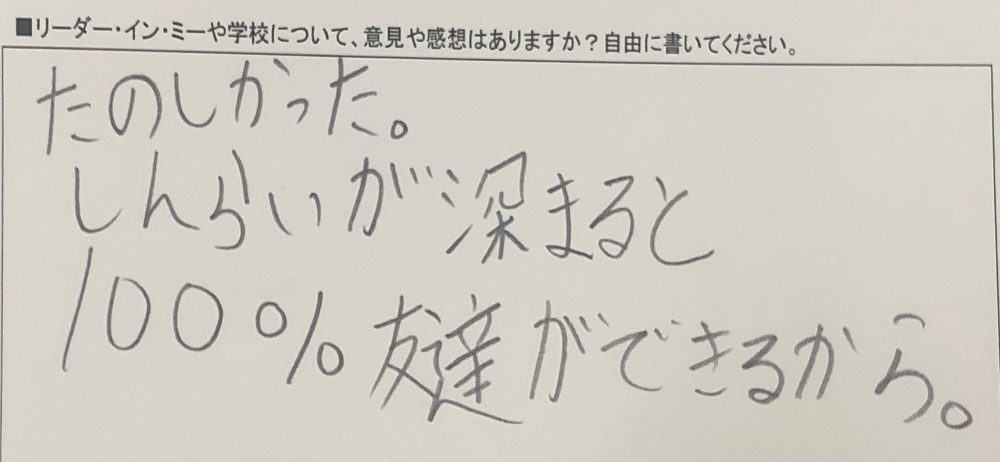 ■リーダー・イン・ミーや学校について、意見や感想はありますか？自由に書いてください。
たのしかった。
しんらいが深まると
100%友達ができるから。